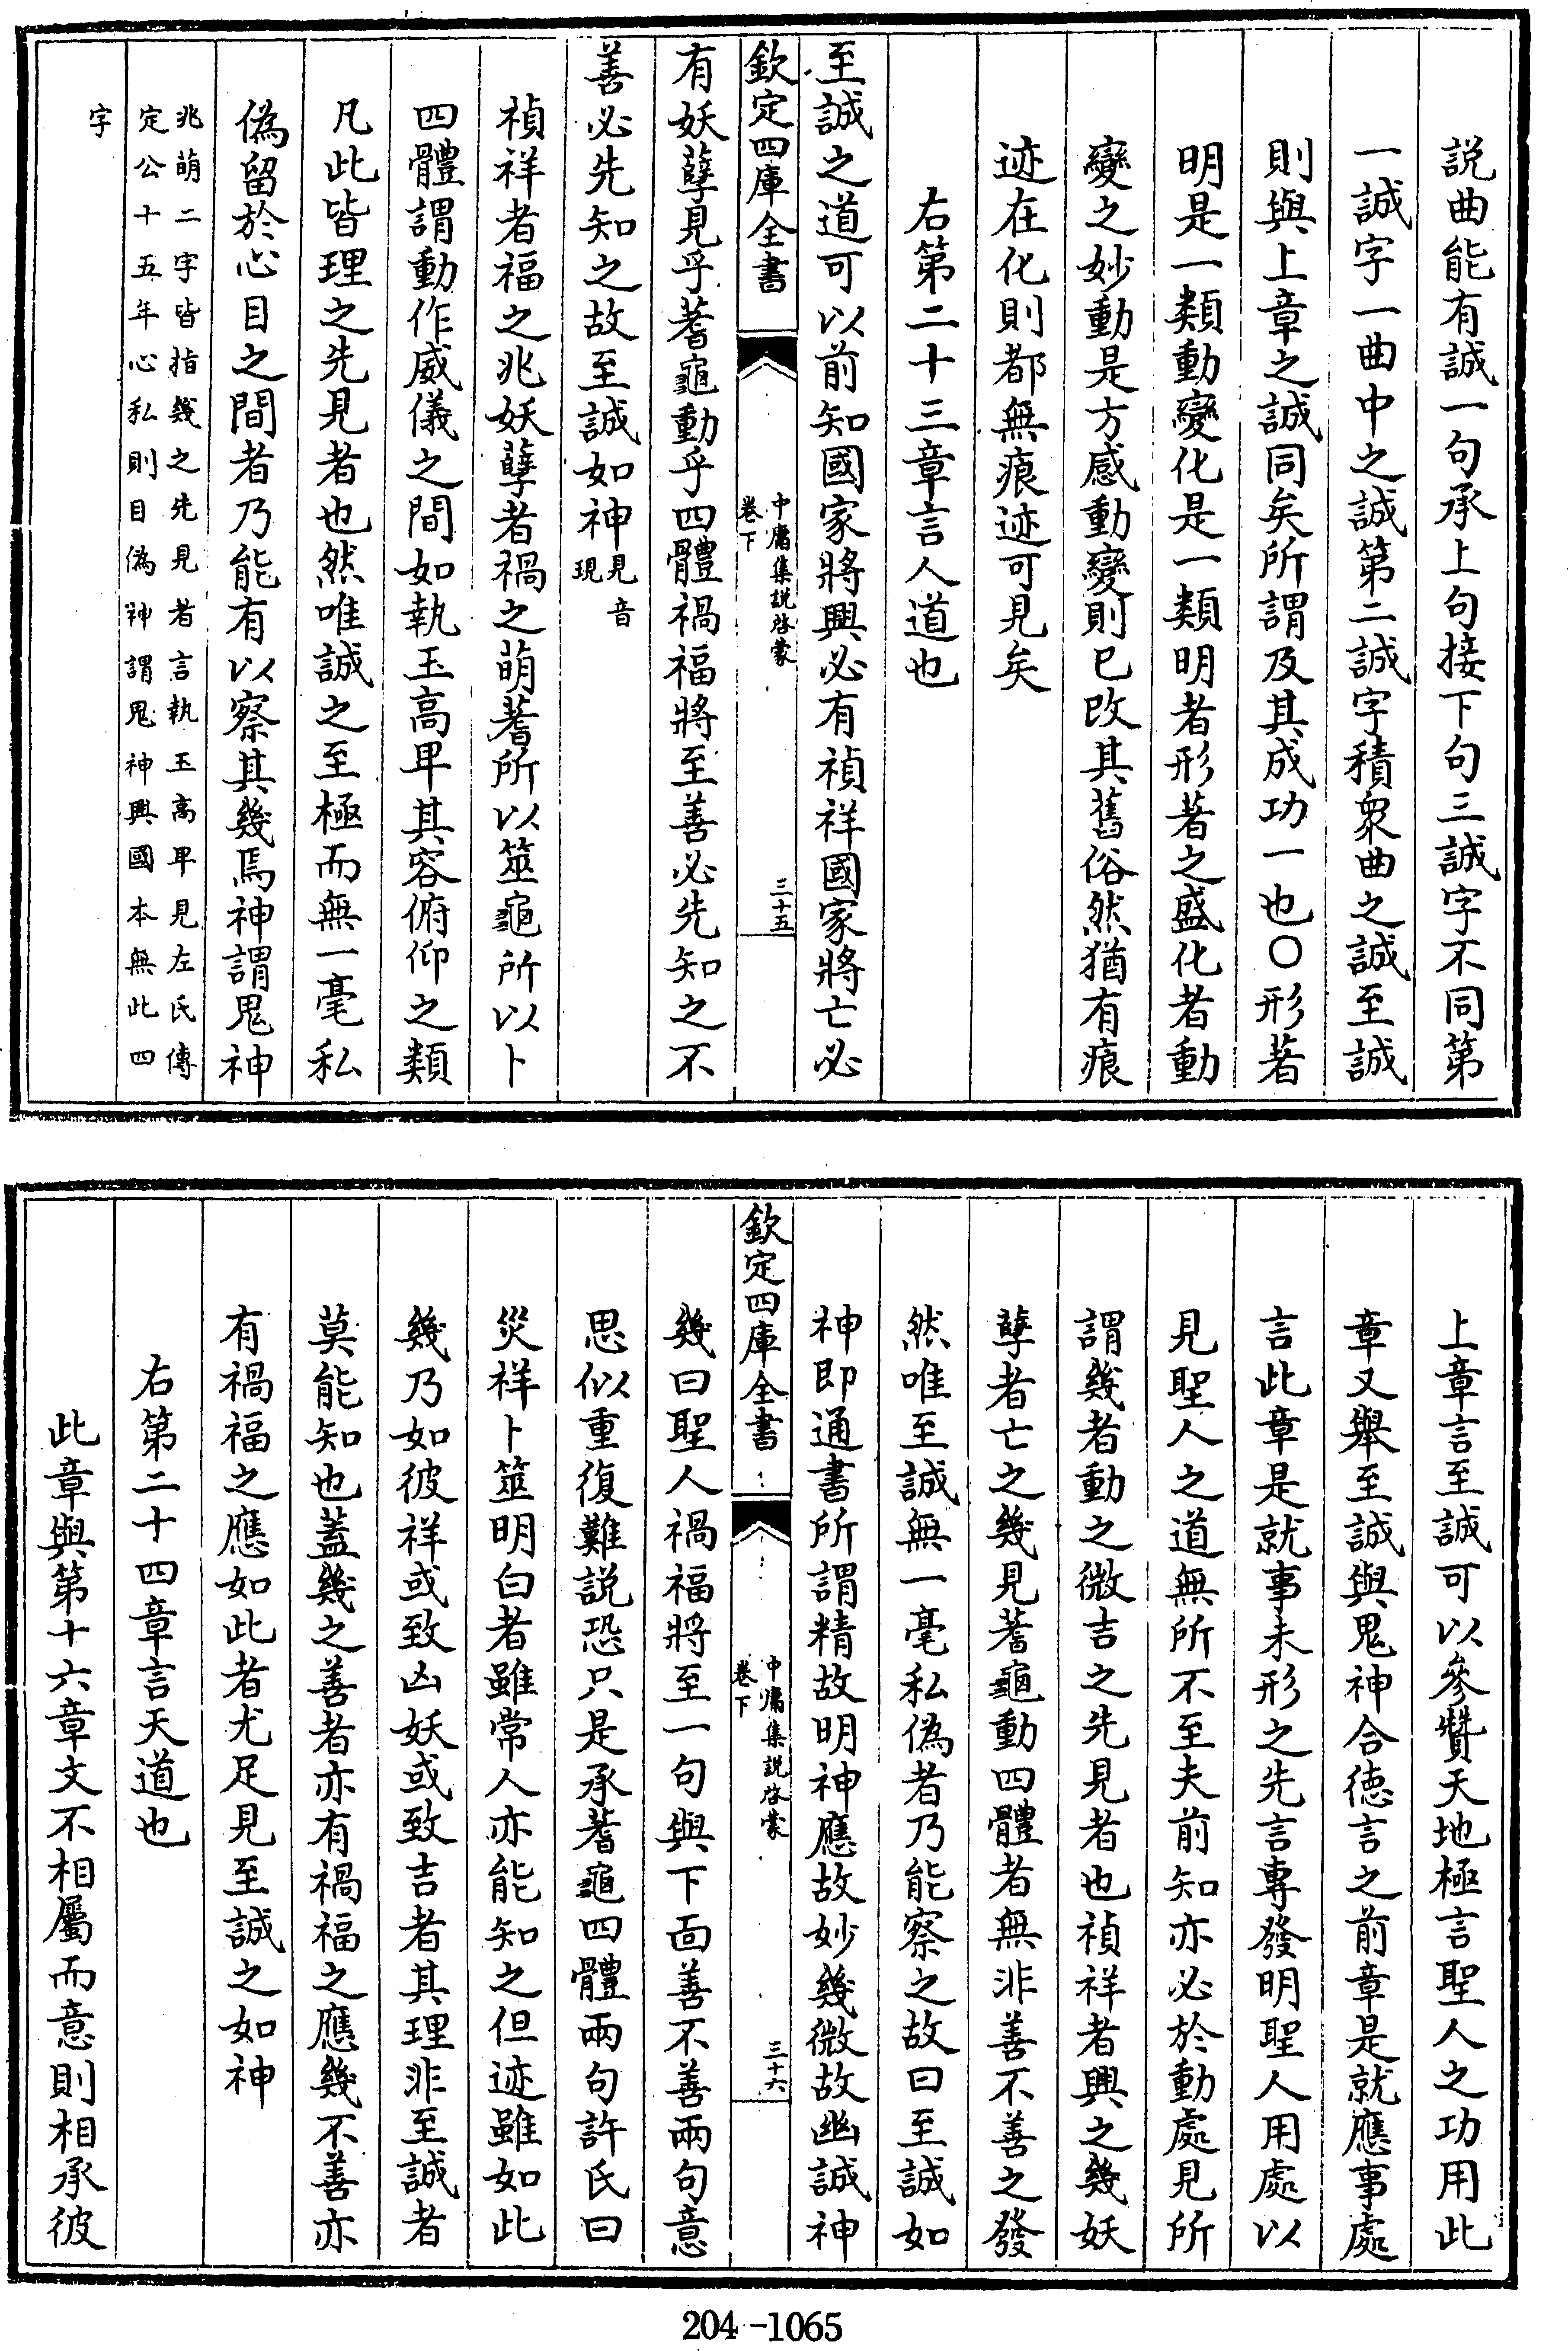 説曲能有誠一句承上句接下句三誠字不同第
一誠字一曲中之誠第二誠字積衆曲之誠至誠
則與上章之誠同矣所謂及其成功一也○形著
明是一類動變化是一類明者形著之盛化者動
變之妙動是方感動變則已改其舊俗然猶有痕
迹在化則都無痕迹可見矣
右第二十三章言人道也
至誠之道可以前知國家將興必有禎祥國家將亡必
欽定四庫全書
中庸集説啓蒙
卷下
三十五
有妖孽見乎蓍龜動乎四體禍福將至善必先知之不
善必先知之故至誠如神見音
現
禎祥者福之兆妖孽者禍之萌蓍所以筮龜所以卜
四體謂動作威儀之間如執玉高卑其容俯仰之類
凡此皆理之先見者也然唯誠之至極而無一毫私
偽留於心目之間者乃能有以察其幾焉神謂鬼神
兆萌二字皆指幾之先見者言執玉高卑見左氏傳
定公十五年心私則目偽神謂鬼神興國本無此四
字
上章言至誠可以參贊天地極言聖人之功用此
章又舉至誠與鬼神合徳言之前章是就應事處
言此章是就事未形之先言專發明聖人用處以
見聖人之道無所不至夫前知亦必於動處見所
謂幾者動之微吉之先見者也禎祥者興之幾妖
孽者亡之幾見蓍龜動四體者無非善不善之發
然唯至誠無一毫私偽者乃能察之故曰至誠如
神即通書所謂精故明神應故妙幾微故幽誠神
欽定四庫全書
中庸集説啓蒙
卷下
三十六
幾曰聖人禍福將至一句與下面善不善兩句意
思似重復難説恐只是承蓍龜四體兩句許氏曰
災祥卜筮明白者雖常人亦能知之但迹雖如此
幾乃如彼祥或致凶妖或致吉者其理非至誠者
莫能知也蓋幾之善者亦有禍福之應幾不善亦
有禍福之應如此者尤足見至誠之如神
右第二十四章言天道也
此章與第十六章文不相屬而意則相承彼
204-1065